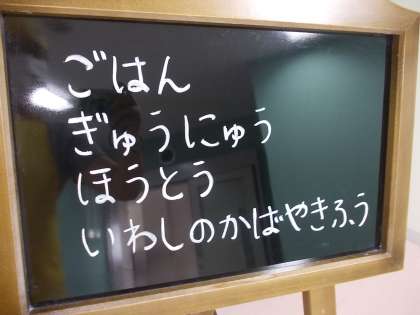 ごはん
ぎゅうにゅう
ほうとう
いわしのかばやきふう